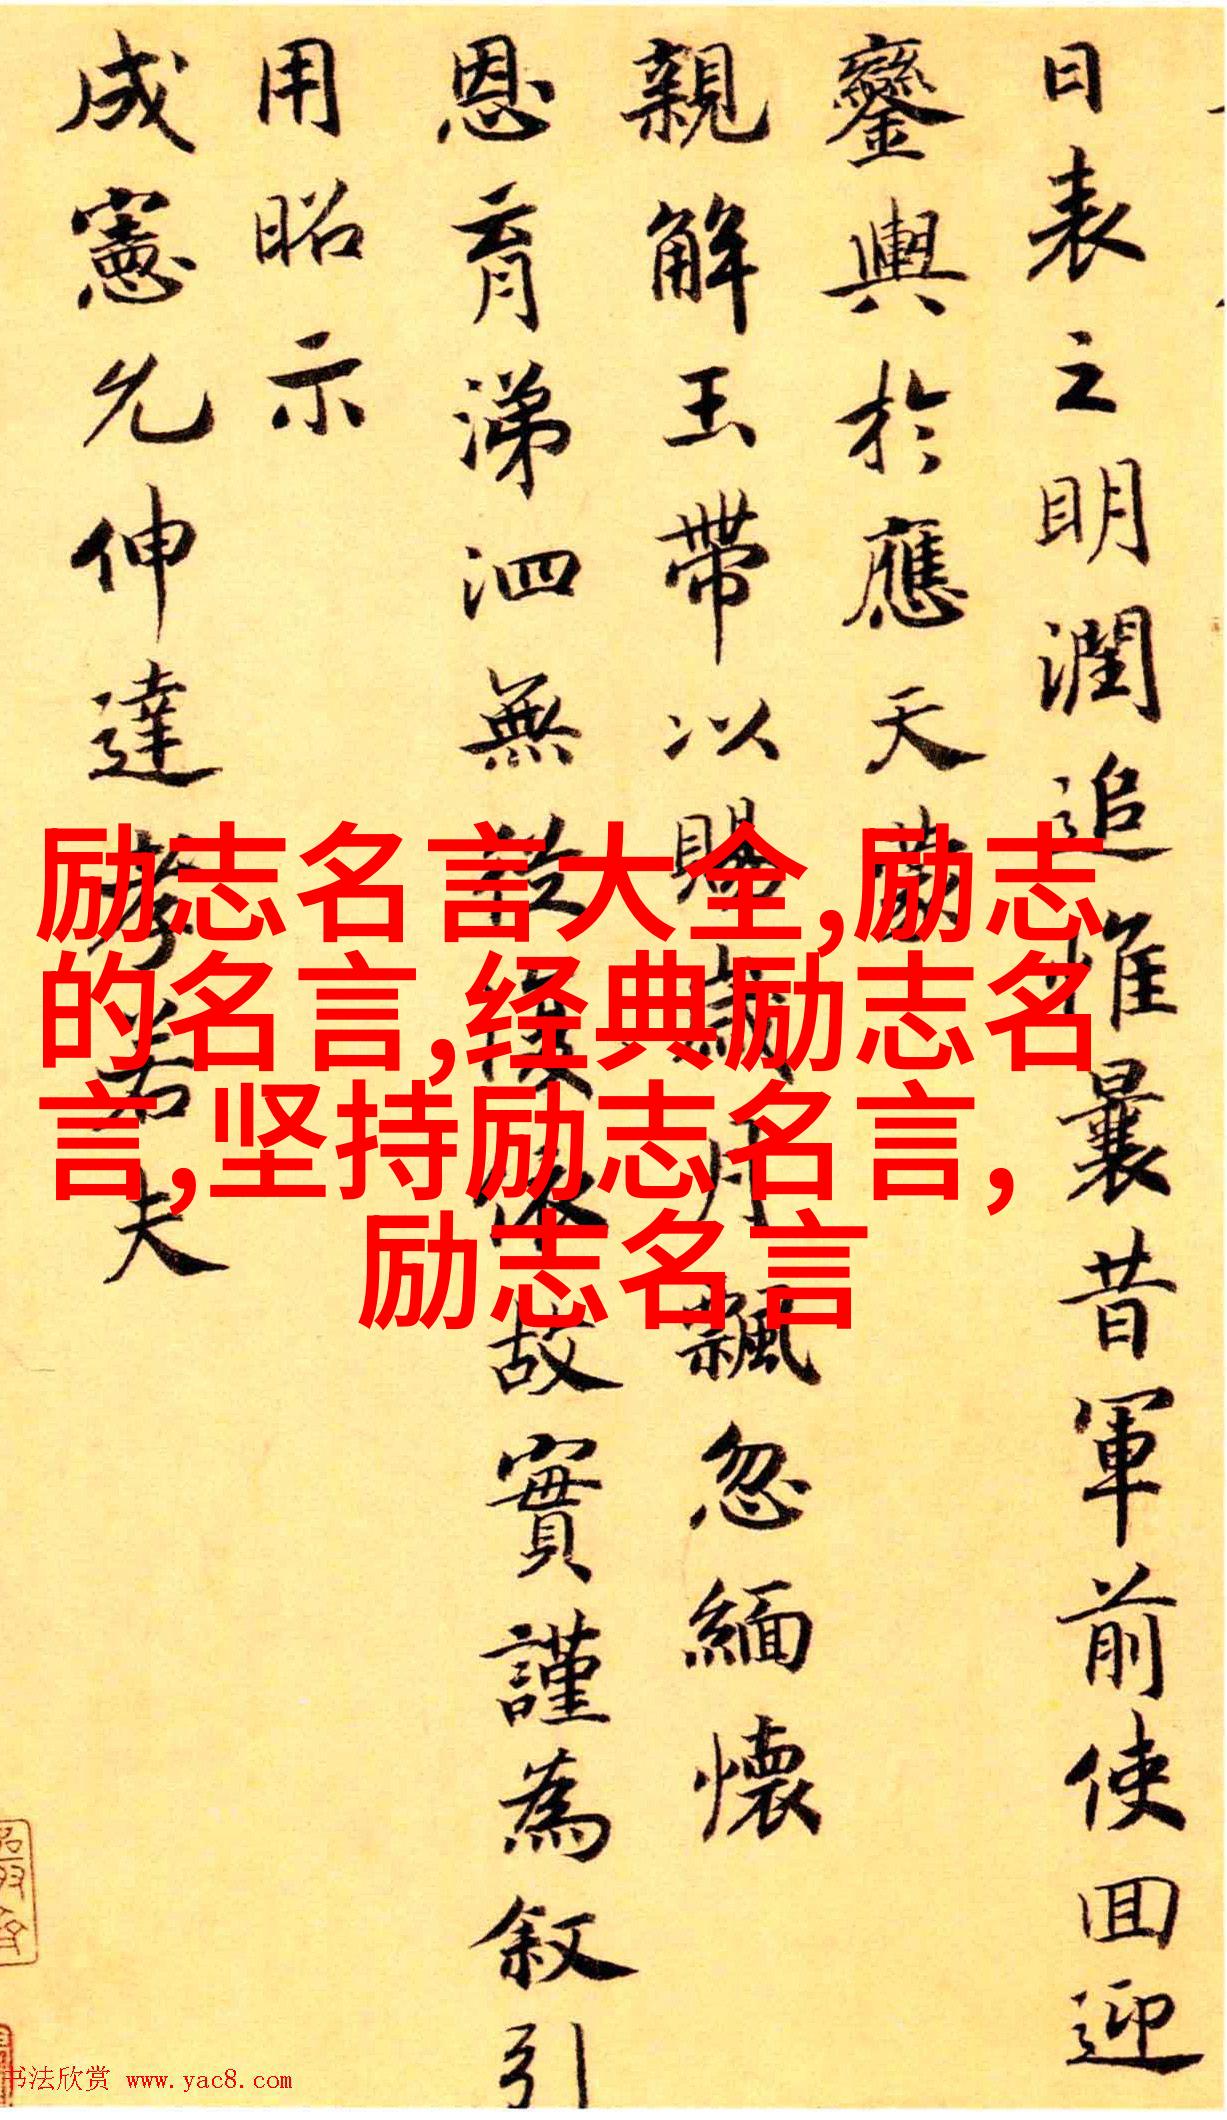 日表之明潤追惟曩昔軍前使回迎
鑾輿於應天蒙
親解玉帶以賜歲月飄忽緬懷
恩育涕泗無從
故實謹為叙引
用昭示
成憲允伸達孝若夫
励志名言大全,励志
的名言,经典励志名
言,坚持励志名言,
励志名言
书法欣赏 www.yac8.com